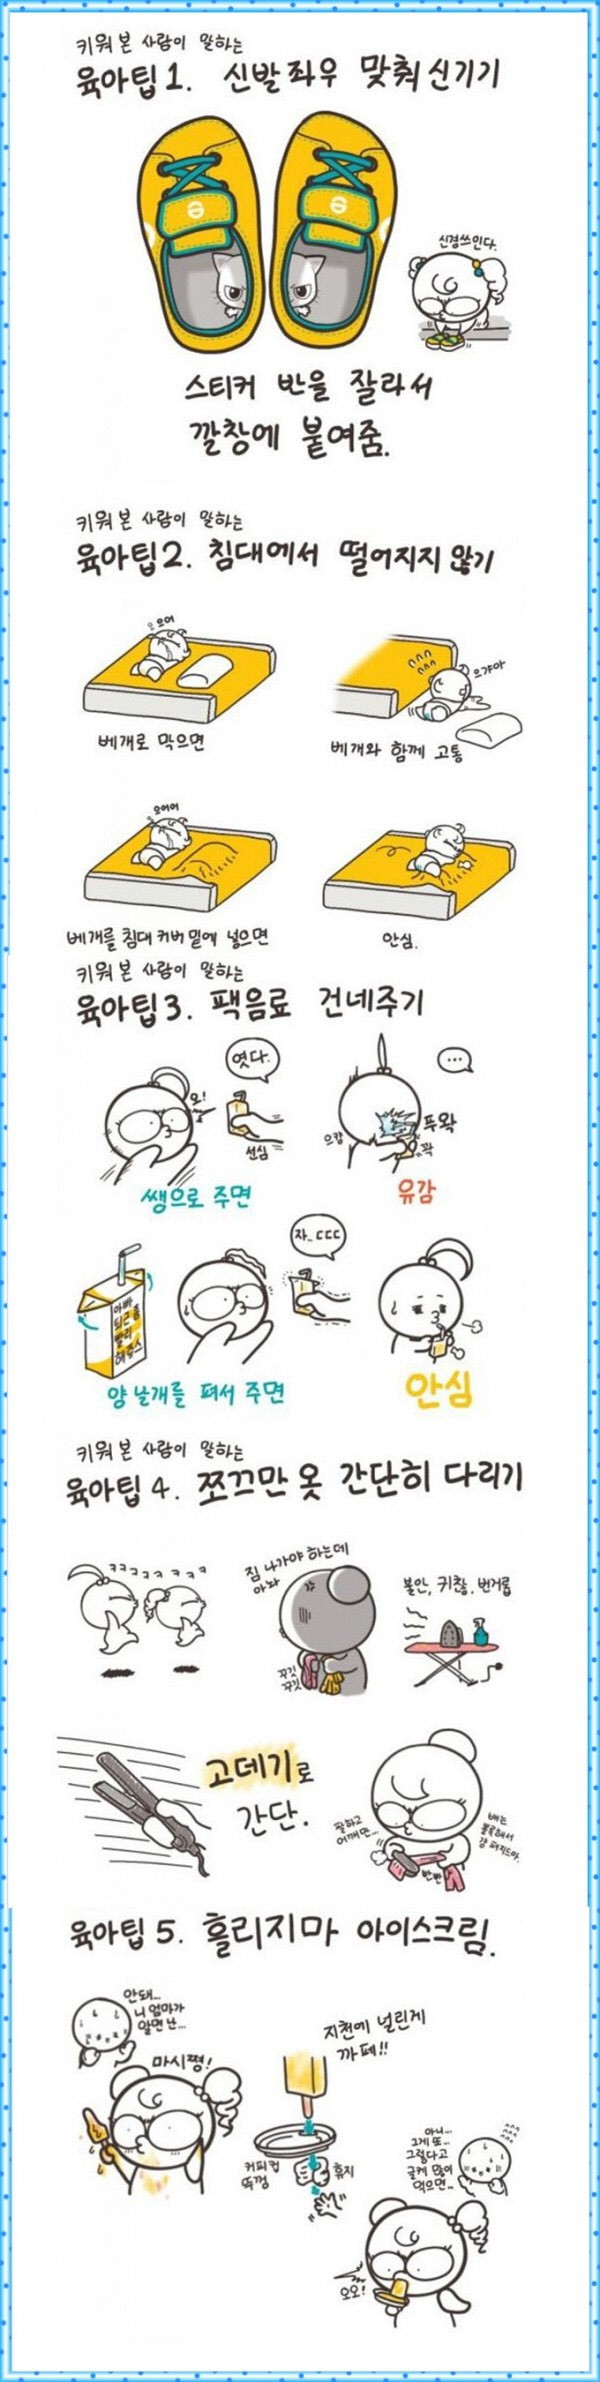 키워 본 사람이 말하는
육아팁1. 신발 좌우 맞춰 신기기
신경쓰인다.
스티커 반을 잘라서
깔창에 붙여줌.
키워 본 사람이 말하는
육아팁2. 침대에서 떨어지지 않기
으어
으갸아
베개로 막으면
베개와 함께 고통
으어어
베개를 침대 커버 밑에 넣으면
안심.
키워 본 사람이 말하는
육아팁3. 팩음료 건네주기
엿다.
...
오!
선심
푸왁
으캅
꽉
쌩으로 주면
유감
자.. ㄷㄷㄷ
아빠
퇴근좀
빨리
해쥬스
양 날개를 펴서 주면
안심
키워 본 사람이 말하는
육아팁 4. 쪼끄만 옷 간단히 다리기
ㅋㅋㅋㅋㅋㅋㅋ
짐 나가야 하는데
아놔
꾸깃
꾸깃
불안, 귀찮, 번거롭
고데기로
간단.
잘하고
어깨면...
배는
볼록해서
걍 펴지드마.
반반
육아팁 5. 흘리지마 아이스크림.
안돼...
니 엄마가
알면 난...
마시쪙!
지천에 널린게
까페!!
커피컵
뚜껑
휴지
아니...
그게 또...
그렇다고
글케 많이
먹으면..
오오!